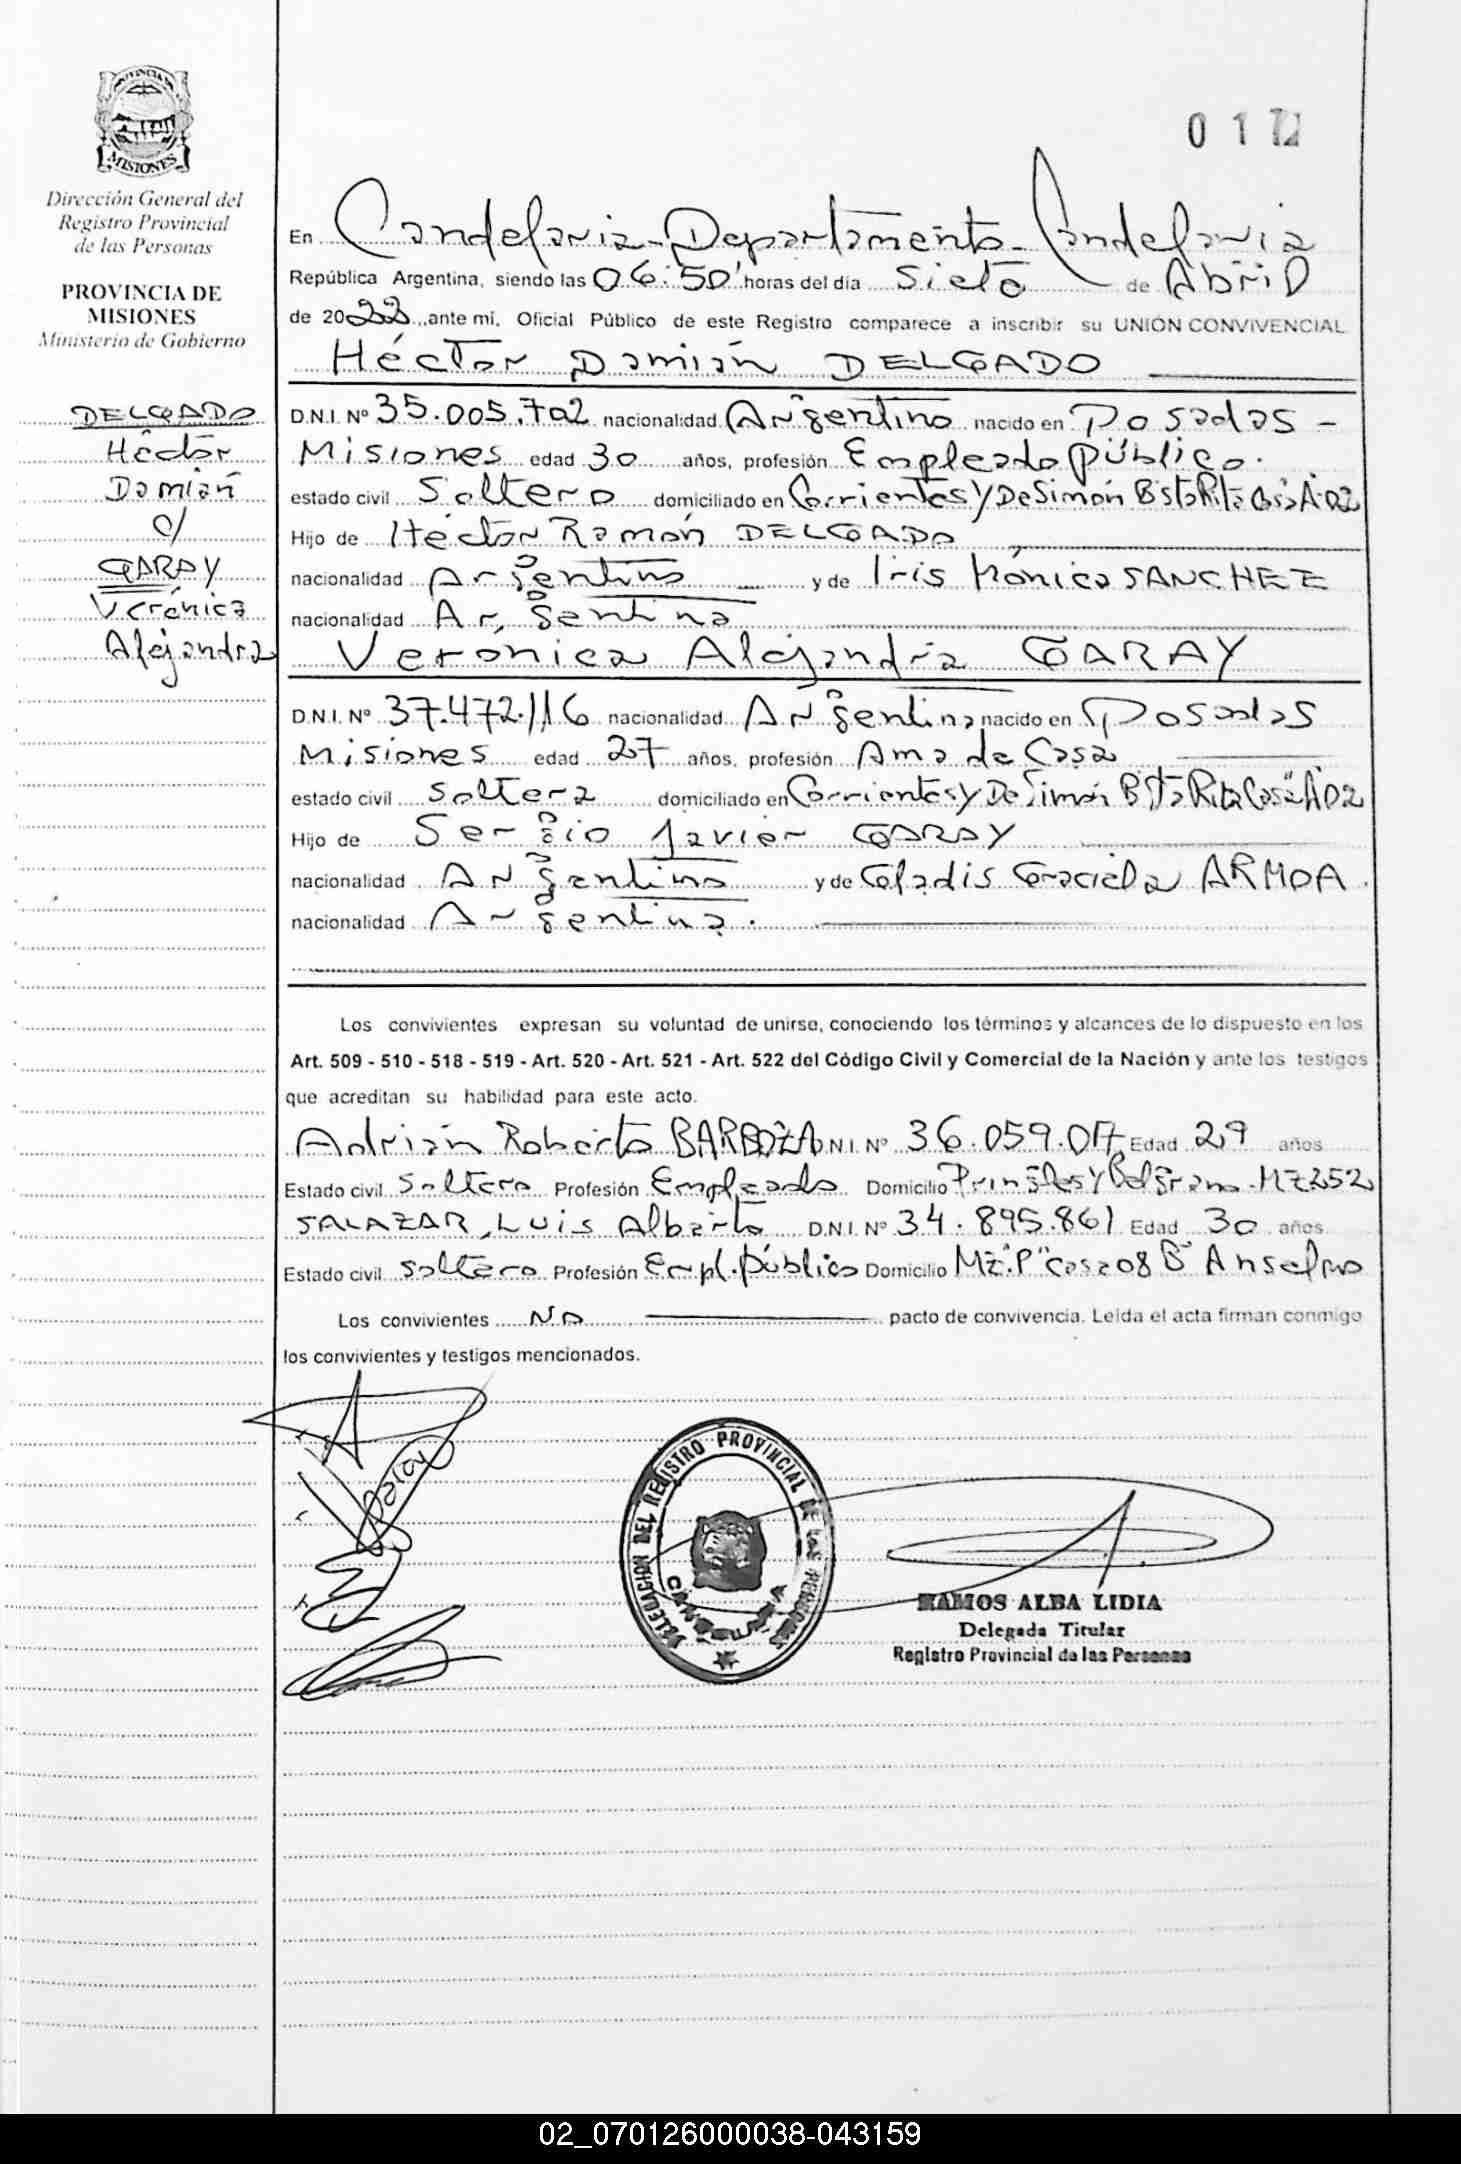 PROVINCIA
MISIONES
Dirección General del
Registro Provincial
de las Personas
PROVINCIA DE
MISIONES
Ministerio de Gobierno
DELGADO
Héctor
Damián
c/
GARAY
Verónica
Alejandra
En Candelaria - Departamento - Candelaria
República Argentina, siendo las 06:50' horas del día Siete de Abril
de 2022 ante mi, Oficial Público de este Registro comparece a inscribir su UNIÓN CONVIVENCIAL
Héctor Damián DELGADO
D.N.I. Nº 35.005.702 nacionalidad Argentino nacido en Posadas -
Misiones edad 30 años, profesión Empleado público.
estado civil Soltero domiciliado en Corrientes y De Simón Bº Sta Rita Casa A-02
Hijo de Héctor Ramón DELGADO
nacionalidad Argentino y de Iris Mónica SANCHEZ
nacionalidad Argentina
Verónica Alejandra GARAY
D.N.I. Nº 37.472.116 nacionalidad Argentina nacido en Posadas
Misiones edad 27 años, profesión Ama de Casa
estado civil Soltera domiciliado en Corrientes y De Simón Bº Sta Rita Casa "A" 02
Hijo de Sergio Javier GARAY
nacionalidad Argentino y de Gladis Graciela ARMOA.
nacionalidad Argentina.
Los convivientes expresan su voluntad de unirse, conociendo los términos y alcances de lo dispuesto en los
Art. 509 - 510 - 518 - 519 - Art. 520 - Art. 521 - Art. 522 del Código Civil y Comercial de la Nación y ante los testigos
que acreditan su habilidad para este acto.
Adrián Roberto BARBOZA D.N.I. Nº 36.059.017 Edad 29 años
Estado civil Soltero Profesión Empleado Domicilio Pringles y Belgrano - Mz 252
SALAZAR, Luis Alberto D.N.I. Nº 34.895.861 Edad 30 años
Estado civil Soltero Profesión Empl. Público Domicilio Mz. "P" casa 08 Bº Anselmo
Los convivientes No pacto de convivencia. Leída el acta firman conmigo
los convivientes y testigos mencionados.
Garay
DELEGACION DEL REGISTRO PROVINCIAL DE LAS PERSONAS
CANDELARIA
RAMOS ALBA LIDIA
Delegada Titular
Registro Provincial de las Personas
02_070126000038-043159